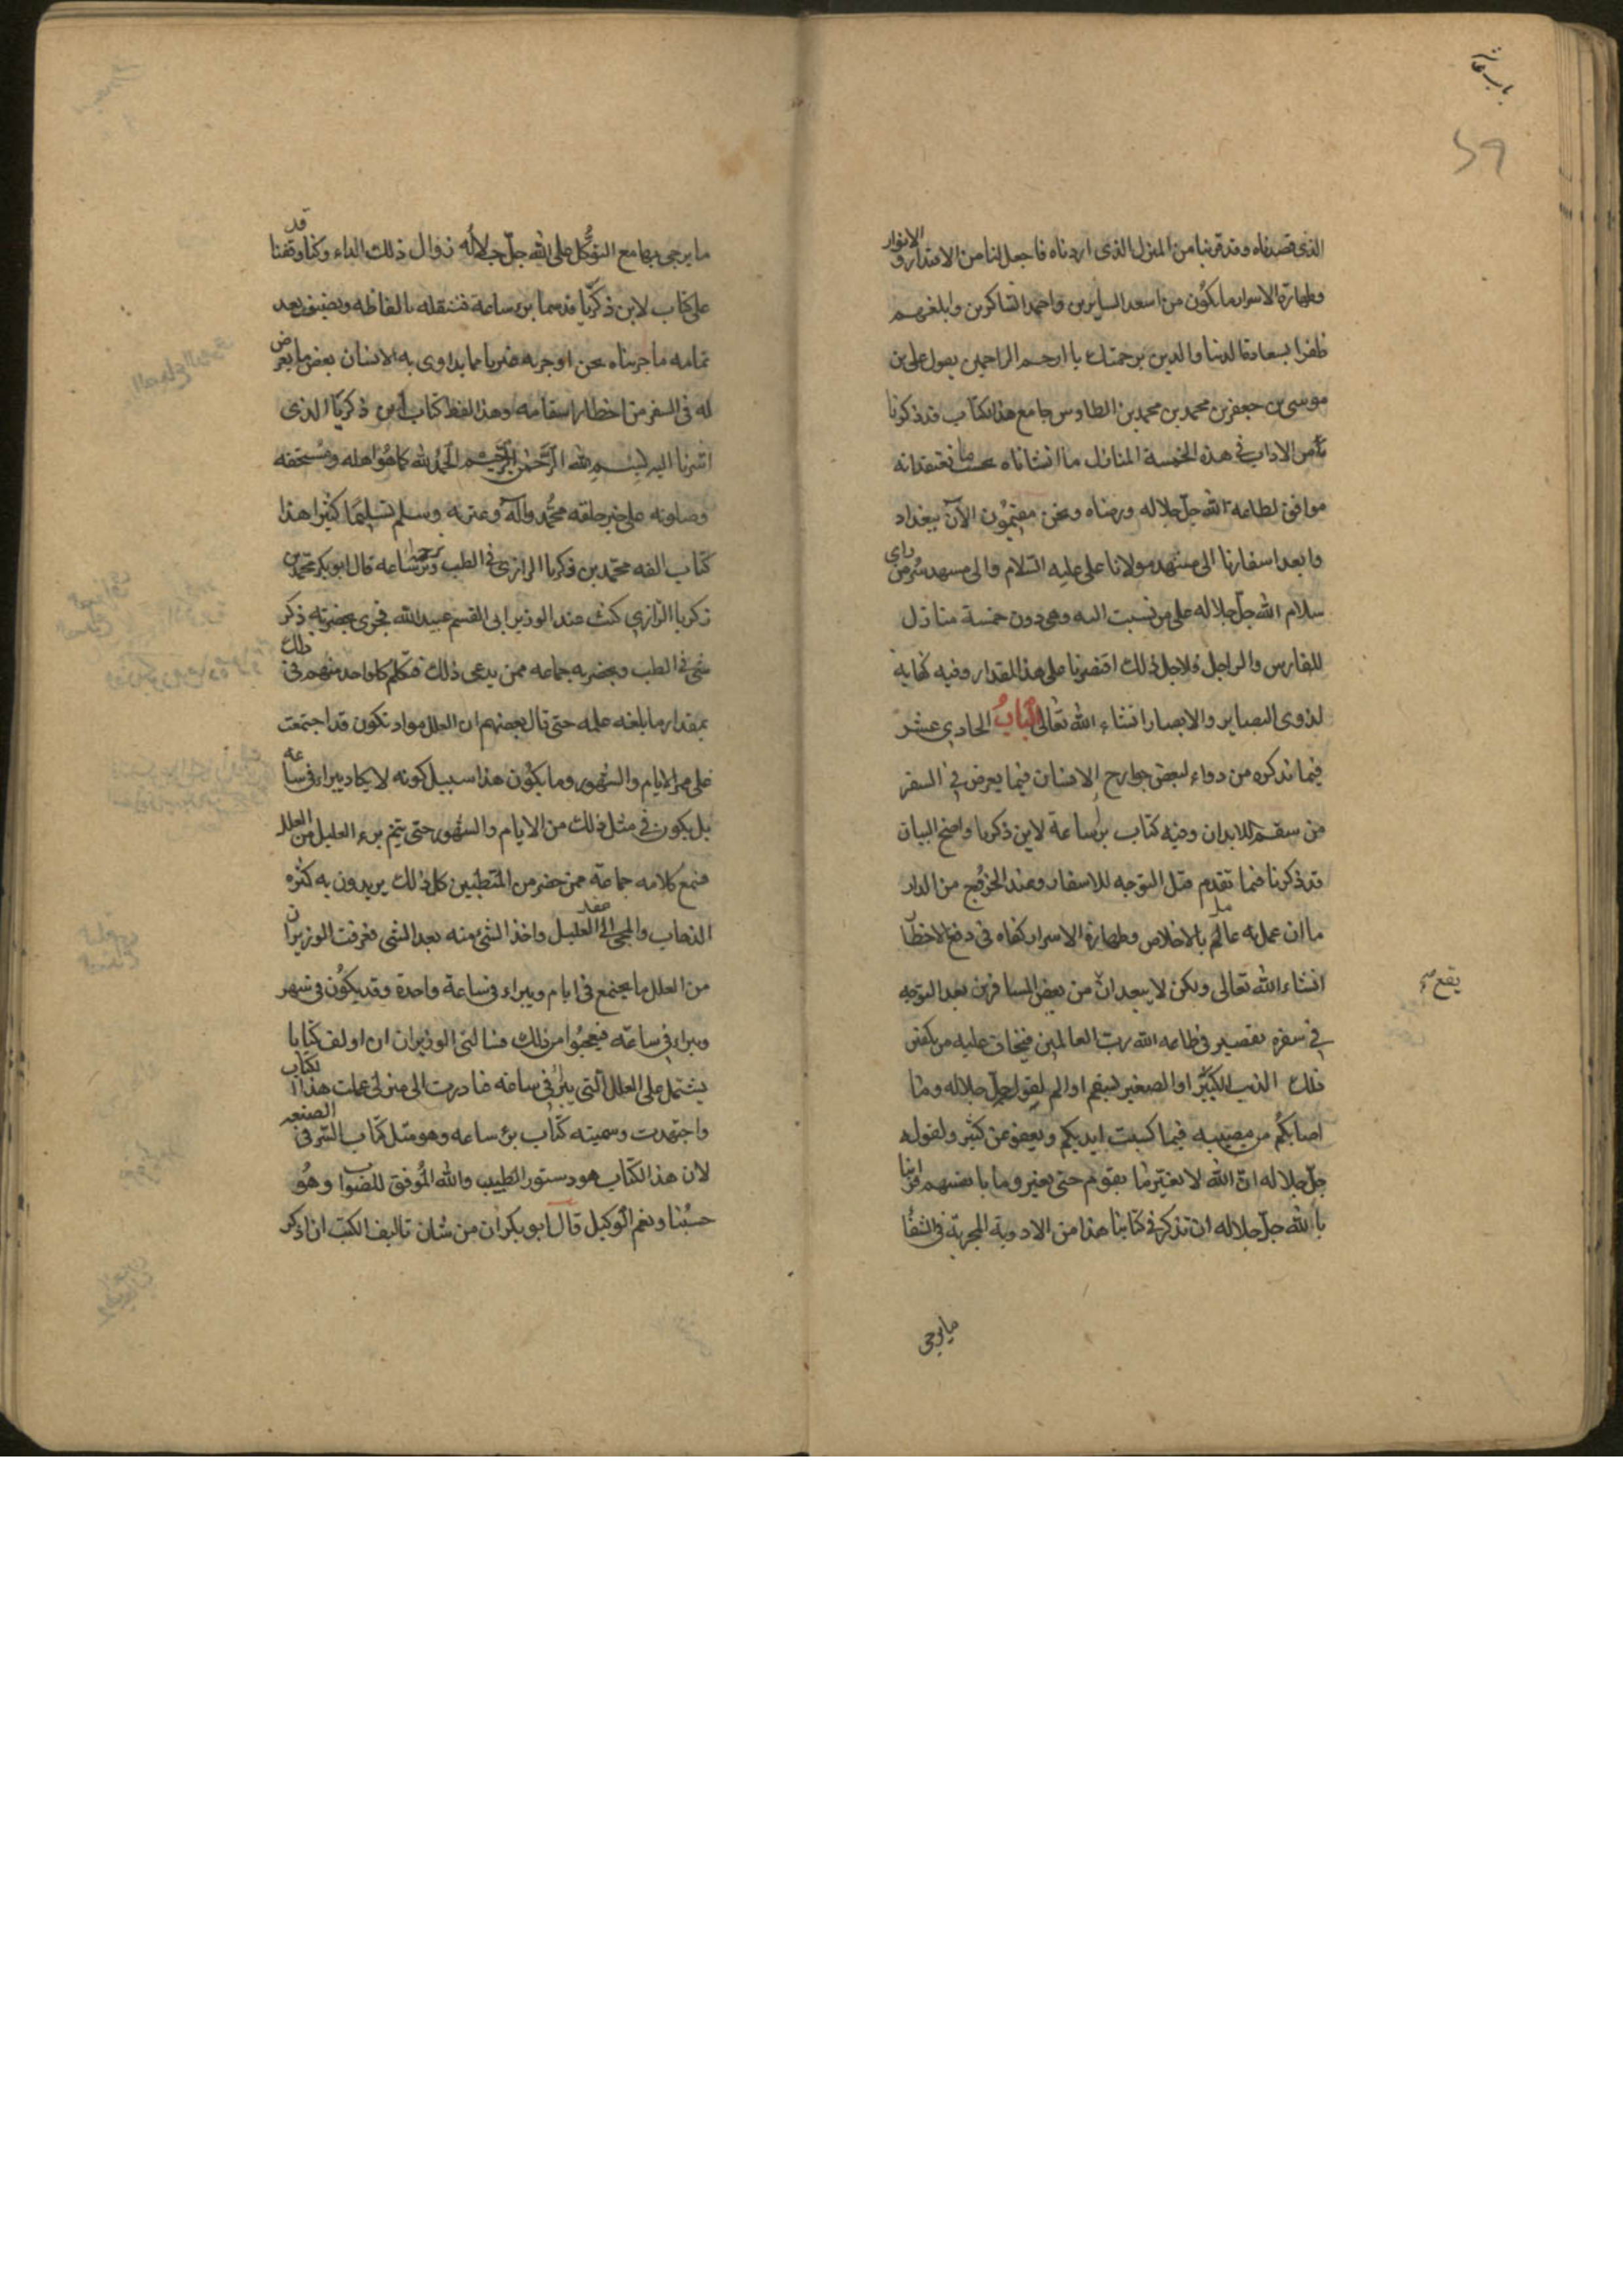 الذى قصدناه وقد قربنا من المنزل الذى اردناه فاجعل لنا من الاقتدار والانوار
وطهارة الاسرار ما نكون من اسعد السايرين واحمد الشاكرين وابلغهم
ظفرا بسعادة الدنيا والدين برحمتك يا ارحم الراحمين يقول على بن
موسى بن جعفر بن محمد بن محمد بن الطاوس جامع هذا الكتاب قد ذكرنا
من الاداب فى هذه الخمسة المنازل ما انشاناه بحسب ما نعتقد انه
موافق لطاعة الله جل جلاله ورضاه ونحن مقيمون الآن ببغداد
وابعد اسفارنا الى مشهد مولانا على عليه السّلام والى مشهد سر من راى
سلام الله جل جلاله على من نسبت اليه وهى دون خمسة منازل
للفارس والراجل فلاجل ذلك اقتصرنا على هذا المقدار وفيه كفاية
لذوى البصاير والابصار انشاء الله تعالى الباب الحادى عشر
فيما نذكره من دواء لبعض جوارح الانسان فيما يعرض فى السفر
من سقم للابدان وفيه كتاب برء ساعة لابن ذكريا واضح البيان
قد ذكرنا فيما تقدم قبل التوجه للاسفار وعند الخروج من الدار
ما ان عمل به عامل بالاخلاص وطهارة الاسرار كفاه فى دفع الاخطار
انشاء الله تعالى ولكن لا يبعد انّ من بعض المسافرين بعد التوجه
يقع
فى سفره تقصير فى طاعة الله رب العالمين فيخاف عليه من يكفر
ذلك الذنب الكبير او الصغير لسقم او الم لقول جل جلاله وما
اصابكم من مصيبة فيما كسبت ايديكم ويعفو عن كثير ولقوله
جل جلاله انّ الله لا يغيّر ما بقوم حتى يغيروا ما بانفسهم
بالله جل جلاله ان نذكر فى كتابنا هذا من الادوية المجربة فى الشفا
ما يرجى
ما يرجى بها مع التوكل على الله جل جلاله زوال ذلك الداء وكنا قد وقفنا
على كتاب لابن ذكريّا قد سماه برء ساعة فننقله بالفاظه ونضيف بعد
تمامه ما جربناه نحن او جربه غيرنا مما يداوى به الانسان بعض ما يعرض
له فى السفر من اخطار اسقامه وهذا لفظ كتاب ابن ذكريّا الذى
اشرنا اليه بسم الله الرّحمن الرّحيم الحمد لله كما هو اهله ومستحقه
وصلوته على خير خلقه محمّد وآله وعترته وسلم تسليما كثيرا هذا
كتاب الفه محمّد بن ذكريا الرازى فى الطب وترجمه برء ساعة قال ابو بكر محمّد بن
زكريا الرّازى كنت عند الوزير ابى القسم عبيد الله فجرى بحضرته ذكر
شئ فى الطب وبحضرته جماعه ممن يدعى ذلك فتكلم كل واحد منهم فى ذلك
بمقدار ما بلغه علمه حتى قال بعضهم ان العلل مواد تكون قد اجتمعت
على مر الايام والشهور وما يكون هذا سبيل كونه لا يكاد يبراء فى ساعة
بل يكون فى مثل ذلك من الايام والشهور حتى يتم برء العليل من العلل
فسمع كلامه جماعة ممن حضر من المتطببين كل ذلك يريدون به كثرة
الذهاب والمجى الى العليل واخذ الشئ منه بعد الشى فعرفت الوزير ان
من العلل ما يجتمع فى ايام ويبراء فى ساعة واحدة وقد يكون فى شهر
ويبراء فى ساعة فعجبوا من ذلك فسالنى الوزير ان اولف كتابا
يشتمل على العلل التى يبرء فى ساعة فبادرت الى منزلى عملت هذا الكتاب
واجتهدت وسميته كتاب برء ساعة وهو مثل كتاب السّر فى الصنعه
لان هذا الكتاب هو دستور الطبيب والله الموفق للصواب وهو
حسبنا ونعم الوكيل قال ابو بكر ان من شان تاليف الكتب ان اذكر